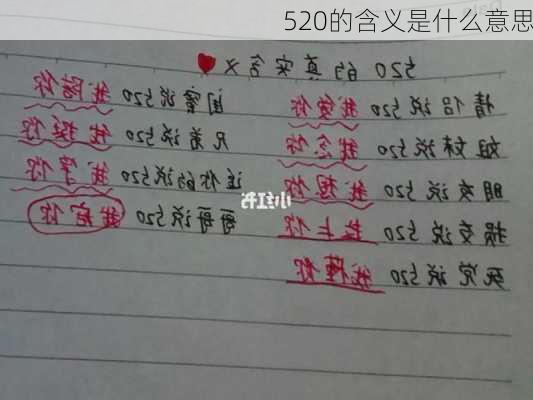 520的含义是什么意思
520的真实含义
情侣说520 我爱你 闺蜜说520 我陪你
姐妹说520 我念你 兄弟说520 我挺你
朋友说520 我想你 追你的说520 我等你
小红书
损友说520 我上你 哥哥说520 我宠你
死党说520 我懂你